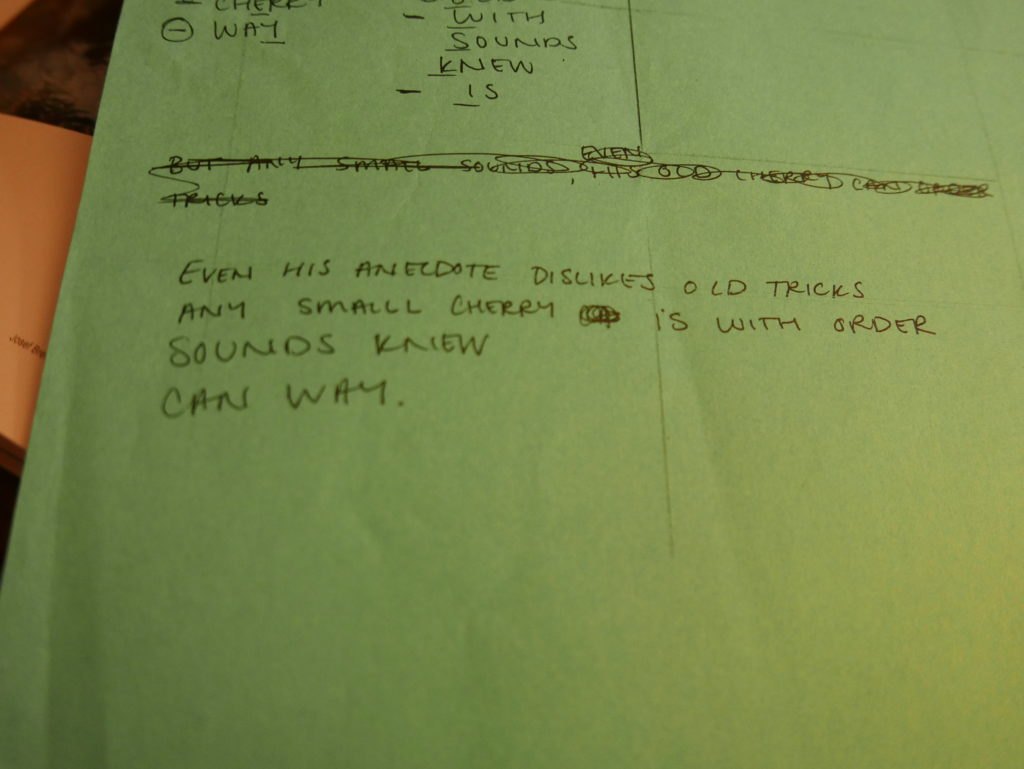 - CHERRY
OLD
⊖ WAY
- WITH
SOUNDS
KNEW
- IS
EVEN
BUT ANY SMALL SOUNDS, HIS OLD CHERRY CAN ORDER
TRICKS
EVEN HIS ANECDOTE DISLIKES OLD TRICKS
ANY SMALL CHERRY IS WITH ORDER
SOUNDS KNEW
CAN WAY.
Josef